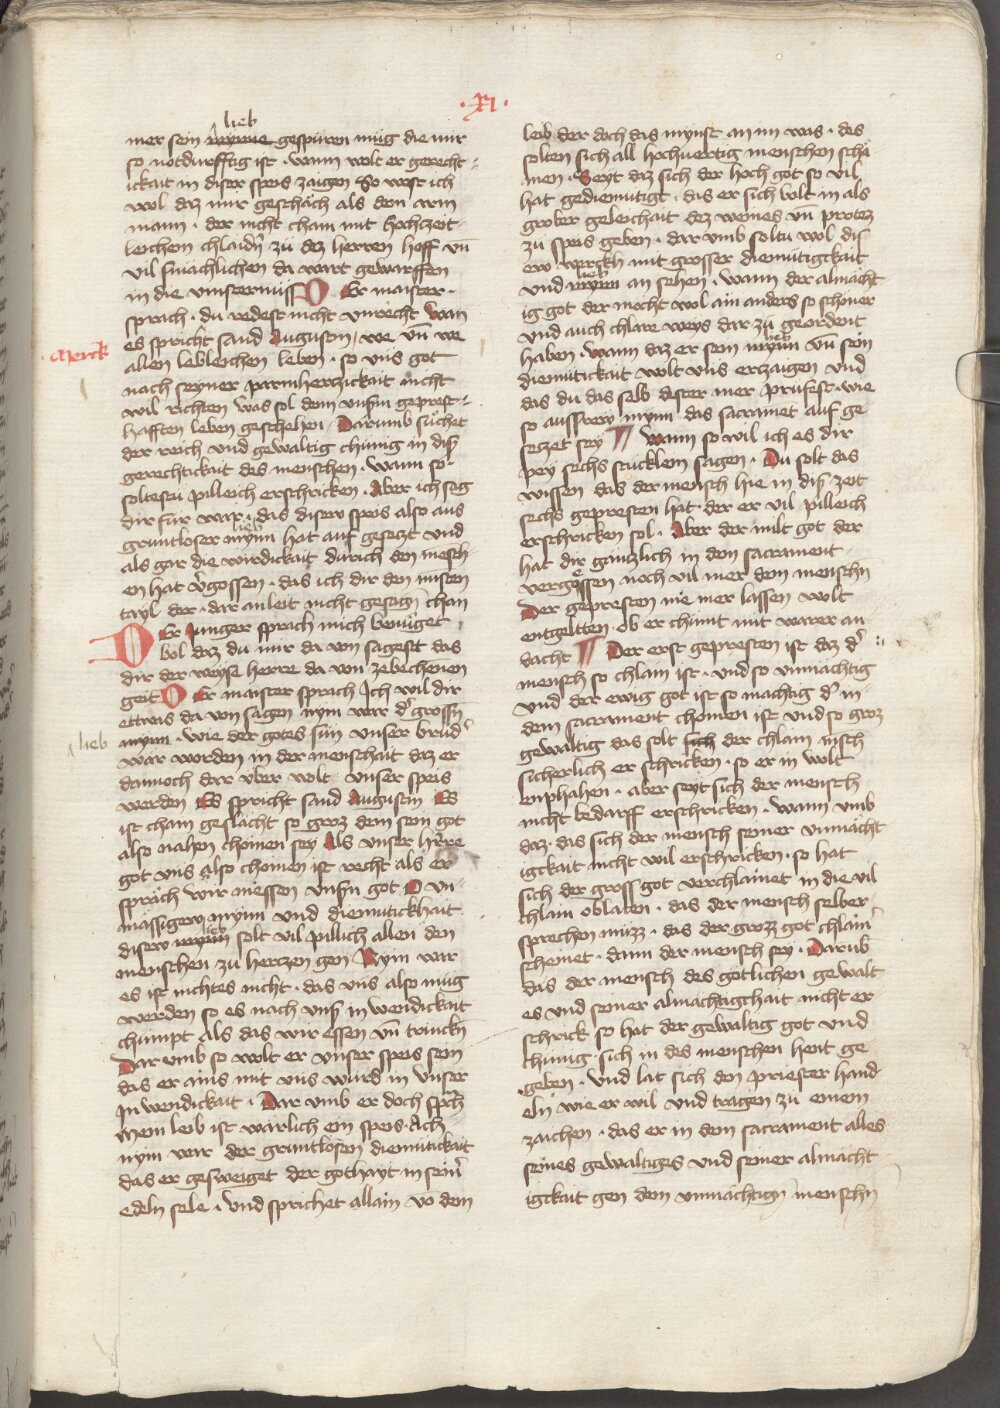 ·XI·
lieb
mer sein mynne gespüren müg die mir
so notdurfftig ist · wann wolt er gerecht
ickait in diser speis zaigen So west ich
wol daz mir geschäch als dem arm
mann · der nicht cham mit hochzeit
leichem chlaidn̄ zü dez herren hoff vn̄
vil smächlichen da wart gewarffen
in die vinsternüss Er maister ·
sprach · du redest nicht vnrecht wan
es spricht sand Augustin / we vn̄ we
Merck
allen lebleichen leben · so vns got
nach seyner parmherczickait nicht
wil richten was sol dem vnsern geprest
hafften leben geschehen / Darumb süchet
der reich vnd gewaltig chünig in diser
gerechtickait des menschen · wann so
soltestu pilleich erschricken · Aber ich sag
dir für war · das disew speis also aus
lieb
gruntloser mynn hat auf gesetzt vnd
als gar die wirdickait durich den mensch
en hat v̄gossen · das ich dir den minsten
tayl der · dar an leit nicht gesagn̄ chan
DEr Junger sprach mich benüget
wol daz du mir da von sagest das
dir der weyse herre da von zebechenen
geit DEr maister sprach Ich wil dir
ettwas da von sagen nym war d' grossn̄
lieb
mynn · wie der gotes sün vnser brüd'
war worden in der menschait daz er
dannoch dar vber wolt vnser speis
werden Es spricht sand Augustin Es
ist cham geslächt so groz dem sein got
also nahen chomen sey Als vnser herre
got vns also chomen ist recht als er
spräch wir messen vnsern got O vn
mässigew mynn vnd diemütickhait
lieb
disew mynn solt vil pillich allen den
menschen zü herczen gen Nym war
es ist nichtes nicht · das vns also müg
werden so es nach vnser inwendickait
chümpt als das wir essen vn̄ trinckn̄
Dar vmb so wolt er vnser speis sein
das er ains mit vns würd in vnser
Inwendickait · Dar vmb er doch sprach
Mein leib ist warlich ein speis · Ach
nym war der gruntlosen diemütickait
das er gesweiget der gothayt in sein'
edeln sele · vnd sprichet allain vo dem
leib der doch das mynst an im was · des
solten sich all hochuertig menschen schä
men · Seyt daz sich der hoch got so vil
hat gediemütigt · das er sich wolt in als
grober geleichait dez weines vn̄ protez
zü speis geben · dar vmb soltu wol dis
ew werckh mit grosser diemütigckait
lieb
vnd mynn an sehen · wann der almächt
ig got der möcht wol ain anders so schöner
vnd auch chlare weys dar zü geordent
lieb
haben · wann daz er sein mynn vn̄ sein
diemütickait wolt vns erczaigen vnd
das du das selb dester mer prüfest · wie
so mynn das sacramet auf ge
setzet sey ¶ wann so wil ich es dir
pey sechs stucklein sagen · Du solt das
wissen das der mensch hie in diser zeit
sechs gepresten hat · der er vil pilleich
erschricken sol · Aber der milt got der
hat dir gäntzlich in dem sacrament
vergossen noch vil mer dem menschn̄
Der gepresten nie mer lassen wolt
entgeltten · ob er chümt mit warer an
dacht ¶ Der erst gepresten ist daz d'
mensch so chlain ist · vnd so vnmächtig
vnd der ewig got ist so mächtig d' in
dem sacrament chomen ist vnd so groz
gewaltig das solt sich der chlain mensch
sicherlich er schricken · so er in wolt
enphahen · aber seyt sich der mensch
nicht bedarff erschricken · wann vmb
daz · das sich der mensch seiner vnmächt
igckait nicht wil erschricken · so hat
sich der gross got verchlainet in die vil
chlain oblaten · das der mensch selber
sprechen müzz · das der grozz got chlain'
scheinet · dann der mensch sey · Darub
das der mensch des götlichen gewalt
es vnd seiner almächtigchait nicht er
schrick so hat der gewaltig got vnd
chünig sich in des menschen hent ge
geben · vnd lat sich den priester hand
eln wie er wil vnd tragen zü einem
zaichen · das er in dem sacrament alles
seines gewaltiges vnd seiner almächt
igckait gen dem vnmächtign̄ menschn̄